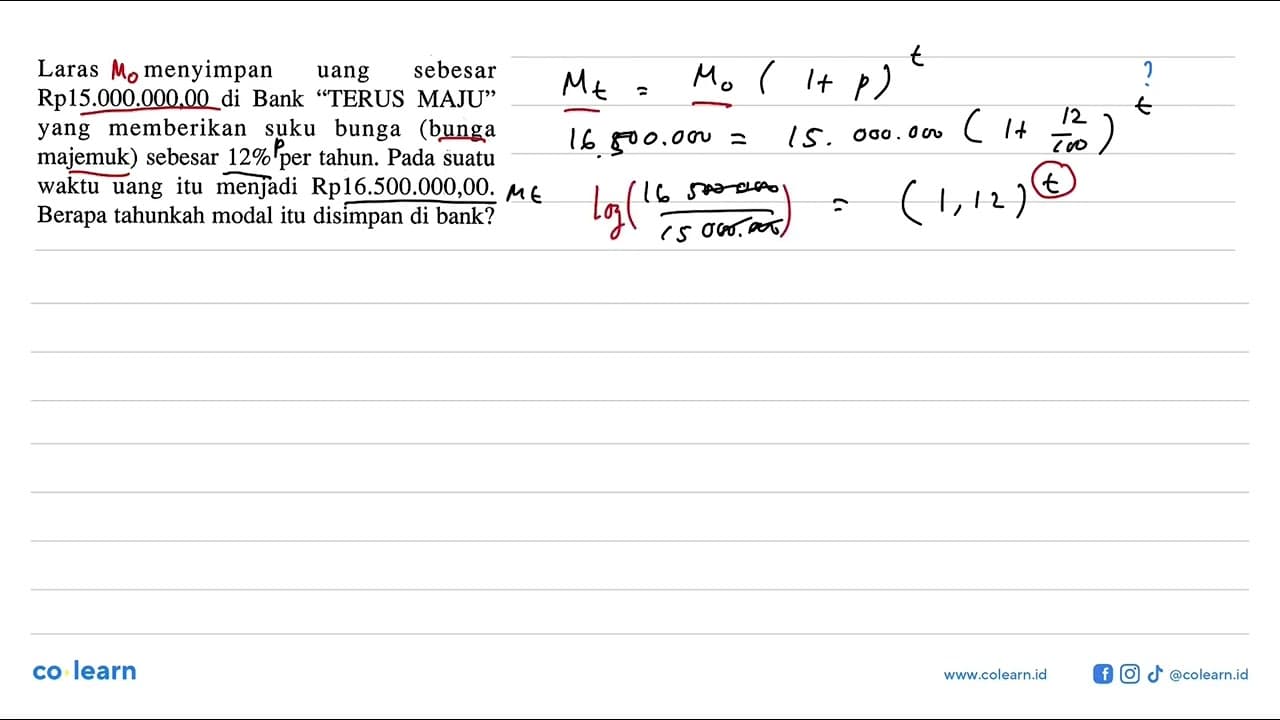 Laras M₀ menyimpan uang sebesar
Rp15.000.000,00 di Bank “TERUS MAJU”
yang memberikan suku bunga (bunga
majemuk) sebesar 12% P per tahun. Pada suatu
waktu uang itu menjadi Rp16.500.000,00. Mt
Berapa tahunkah modal itu disimpan di bank?
Mt = M₀ (1+p)^t
?
16.500.000 = 15.000.000 (1+ 12/100)^t
log(16 500 000/15 000.000) = (1,12)^t
co learn
www.colearn.id
@colearn.id